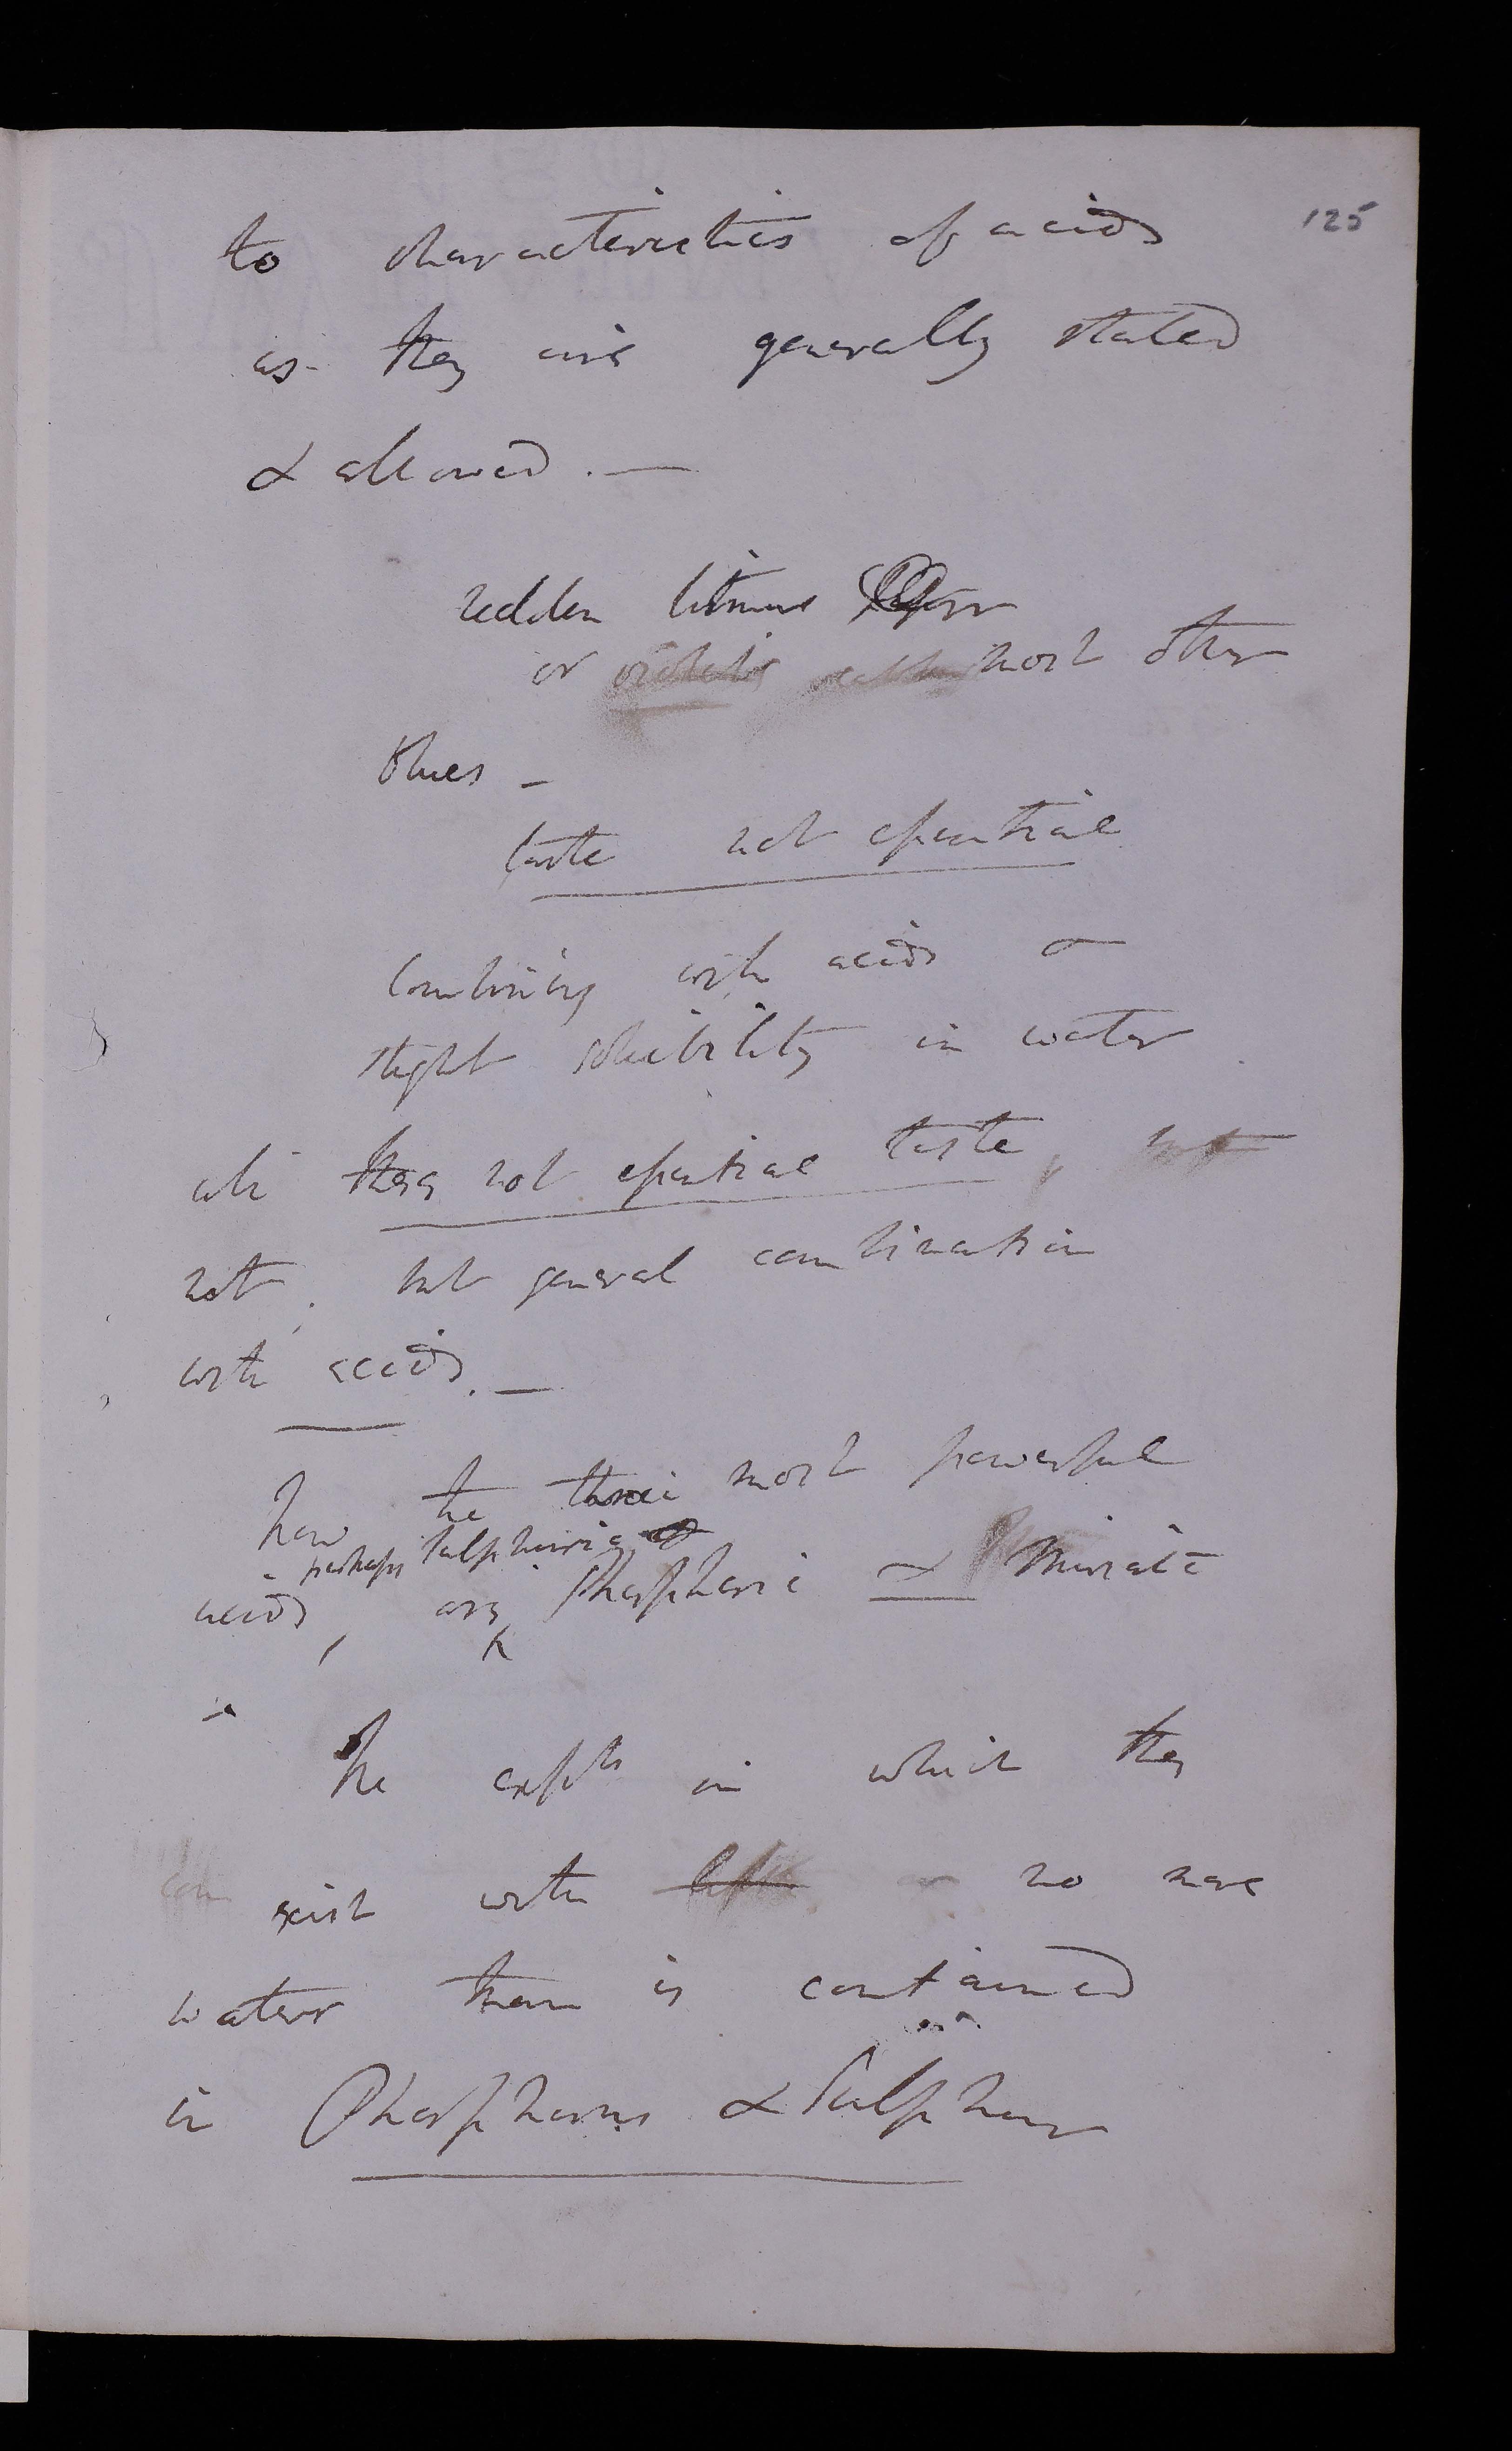 125
to characteristics of acids
as they are generally stated
& allowed. —
redden litmus
or violets most other
blues —
taste not essential
Combining with acids or
slight solubility in water
alk: they not essential taste,
not, but general combination
with acids. —
now the three most powerful
- perhaps Sulphuric
acids, are Phosphoric & Muriatic
The expts in which they
can exist with no more
water than is contained
in Phosphorus & Sulphur